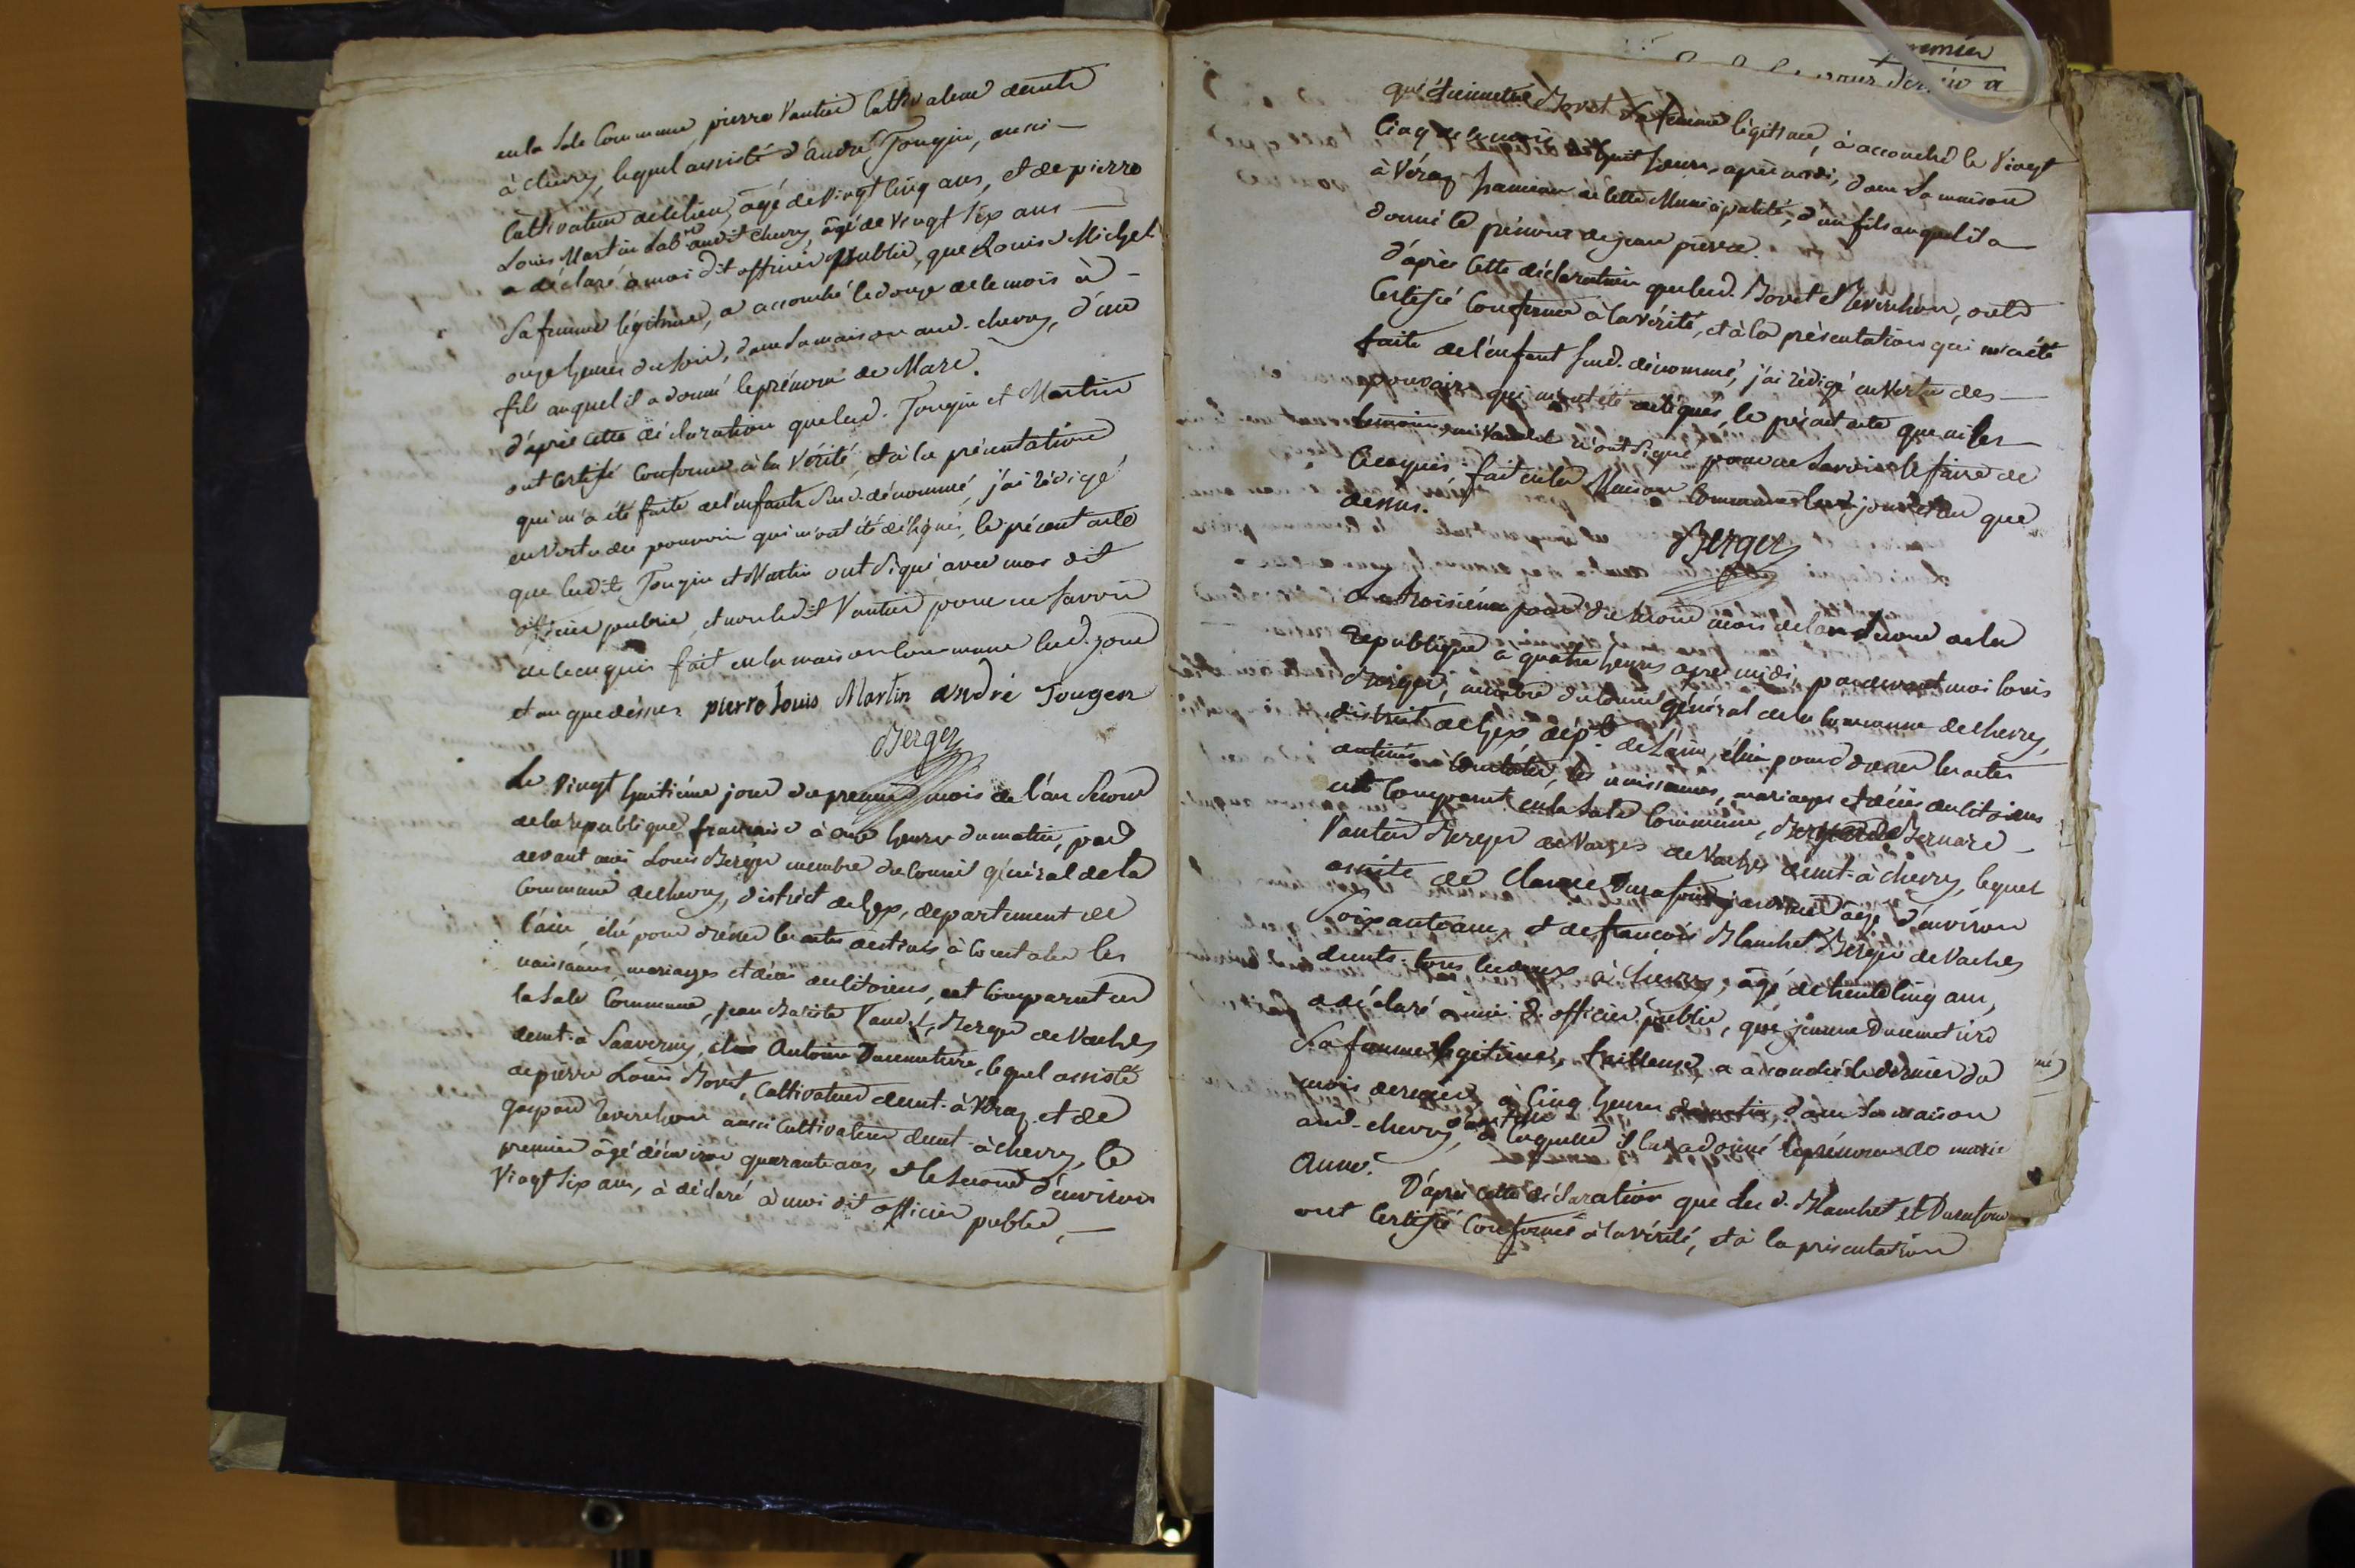 en la Sale Commune, pierre Vautier Cultivateur demt
à chevry, lequel assisté d'andré Tougin, aussi —
Cultivateur de ce lieu, âgé de vingt Cinq ans, et de pierre
Louis Martin Labr audit chevry, âgé de vingt Six ans —
a déclaré à moi dit officier public, que Louise Michel
Sa femme légitime, a accouché le douze de ce mois à —
onze heures du Soir, dans Sa maison aud. chevry, d'un
fils auquel il a donné le prénom de Marc.
d'après cette déclaration que lesd. Tougin et Martin
ont Certifié Conforme à la Vérité, et à la présentation
qui m'a été faite de l'enfant Susd. dénommé, j'ai rédigé
en Vertu des pouvoirs qui m'ont été délégués, le présent acte
que lesdits Tougin et Martin ont Signé avec moi dit
officier public, et non ledit Vautier pour ne Savoir
de ce enquis fait en la maison Commune lesd. jour
et an que dessus pierre Louis Martin andré Tougin
Berger
Le Vingt huitième jour du premier mois de l'an Second
de la republique française à onze heures du matin, par
devant moi Louis Berger membre du Conseil général de la
Commune de chevry, district de Gex, département de
l'ain, élu pour dresser les actes destinés à Constater les
naissances mariages et décès des Citoiens, est Comparut en
la Sale Commune, jean Batiste Berger de Vaches
demt. à Sauverny, Antoine Ducimetière, lequel assisté
de pierre Louis Bovet, Cultivateur demt. à Véraz et de
gaspard Reverchon aussi Cultivateur demt à chevry, le
premier âgé d'environ quarante ans, et le Second d'environ
Vingt Six ans, à déclaré à moi dit officier public, —
premier
que Bovet Sa femme légitime, à accouché le Vingt
Cinq de ce mois à huit heures après midi, dans Sa maison
à Véraz hameau de cette Municipalité, d'un fils auquel il a
donné le prénom de jean pierre.
d'après Cette déclaration que lesd. Bovet et Reverchon, ont
Certifié Conforme à la Vérité, et à la présentation qui m'a été
faite de l'enfant Susd. dénommé, j'ai rédigé en Vertu des —
pouvoirs qui m'ont été délégués, le présent acte que ni les —
temoins, ni n'ont Signé pour ne Savoir le faire de
Ce enquis. fait en la Maison Commune les jour et an que
dessus.
Berger
Le troisième jour du Second mois de l'an Second de la
republique à quatre heures après midi, pardevant moi Louis
Berger, membre du Conseil général de la Commune de chevry,
district de Gex dépt. de l'ain, élu pour dresser les actes
destinés à Constater, les naissances, mariages et décès des Citoiens
est Comparut en la Sale Commune, Bernard
Vautier Berger de Vaches demt. à chevry, lequel
assisté de Claude Durafour, âgé d'environ
Soixante ans, et de francois Blanchet Berger de Vaches
demts. tous les deux à chevry, âgé de trente Cinq ans,
a déclaré à moi d. officier public, que jeanne Ducimetière
Sa femme légitime, tailleuse, a accouché le dernier du
mois dernier, à Cinq heures du matin, dans Sa maison
aud. chevry, d'une fille à laquelle il lui a donné le prénom de marie
Anne.
D'après cette déclaration que les d. Blanchet et Durafour
ont Certifié Conforme à la Vérité, et à la présentation